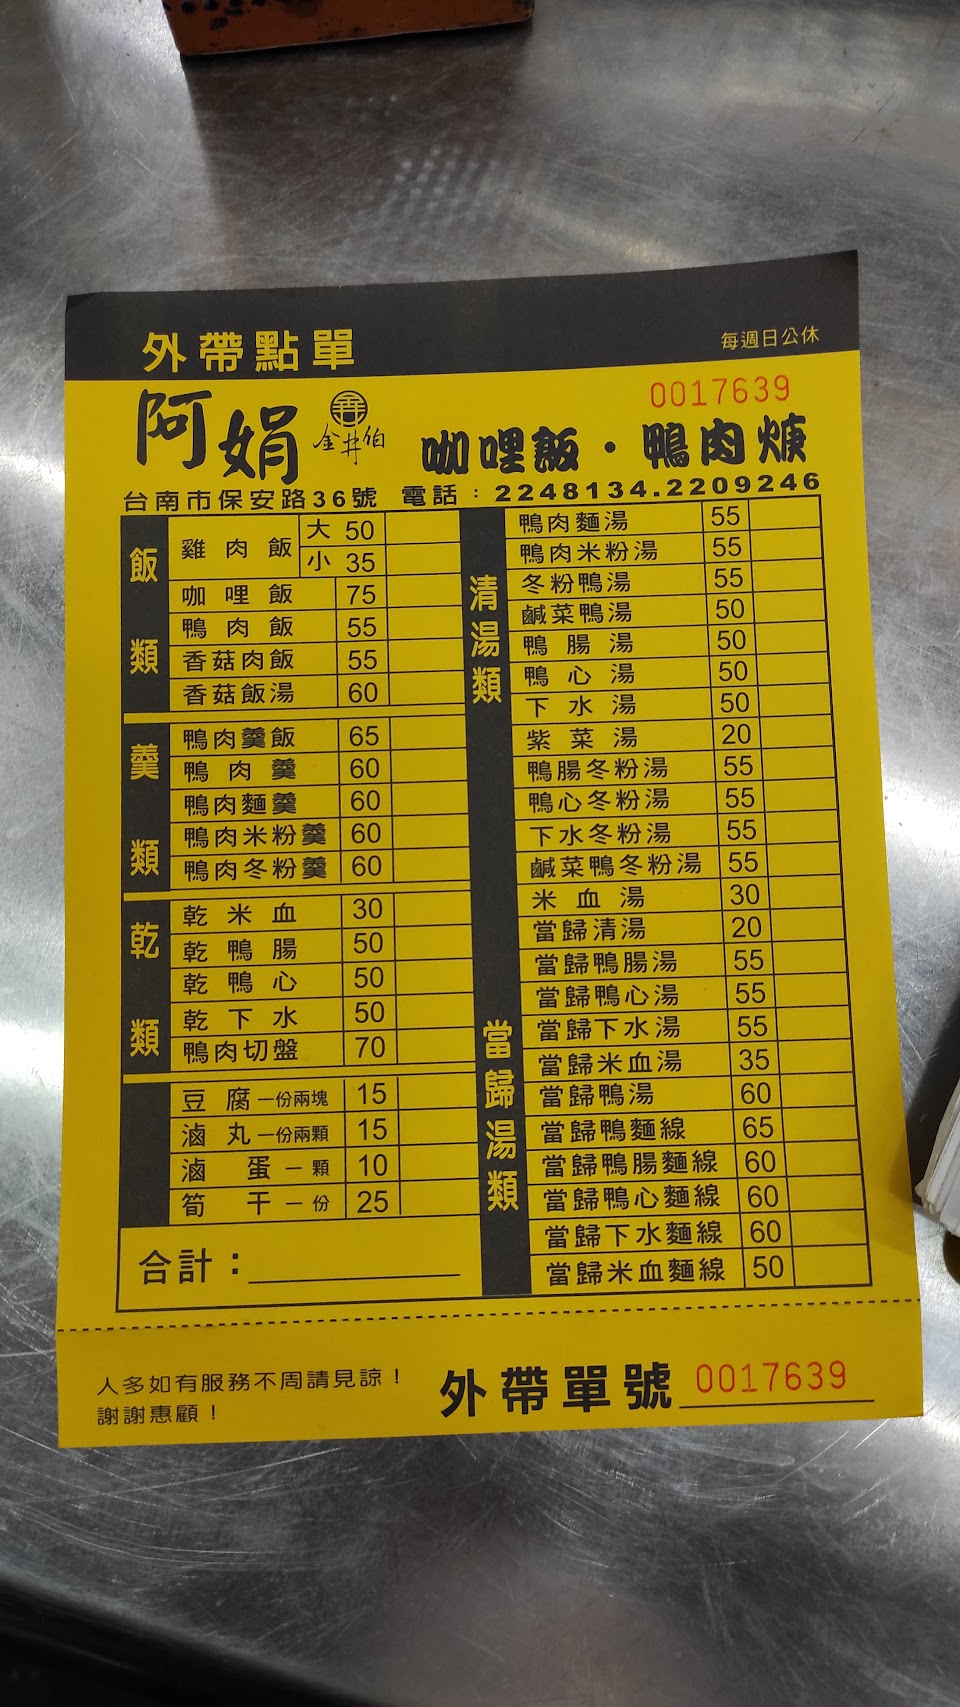 外帶點單
每週日公休
0017639
阿娟 金井伯 咖哩飯・鴨肉焿
台南市保安路36號 電話：2248134.2209246
飯類
雞肉飯 大 50
小 35
咖哩飯 75
鴨肉飯 55
香菇肉飯 55
香菇飯湯 60
羹類
鴨肉羹飯 65
鴨肉羹 60
鴨肉麵羹 60
鴨肉米粉羹 60
鴨肉冬粉羹 60
乾類
乾米血 30
乾鴨腸 50
乾鴨心 50
乾下水 50
鴨肉切盤 70
豆腐一份兩塊 15
滷丸一份兩顆 15
滷蛋一顆 10
筍干一份 25
合計：
清湯類
鴨肉麵湯 55
鴨肉米粉湯 55
冬粉鴨湯 55
鹹菜鴨湯 50
鴨腸湯 50
鴨心湯 50
下水湯 50
紫菜湯 20
鴨腸冬粉湯 55
鴨心冬粉湯 55
下水冬粉湯 55
鹹菜鴨冬粉湯 55
米血湯 30
當歸湯類
當歸清湯 20
當歸鴨腸湯 55
當歸鴨心湯 55
當歸下水湯 55
當歸米血湯 35
當歸鴨湯 60
當歸鴨麵線 65
當歸鴨腸麵線 60
當歸鴨心麵線 60
當歸下水麵線 60
當歸米血麵線 50
人多如有服務不周請見諒！
謝謝惠顧！
外帶單號 0017639